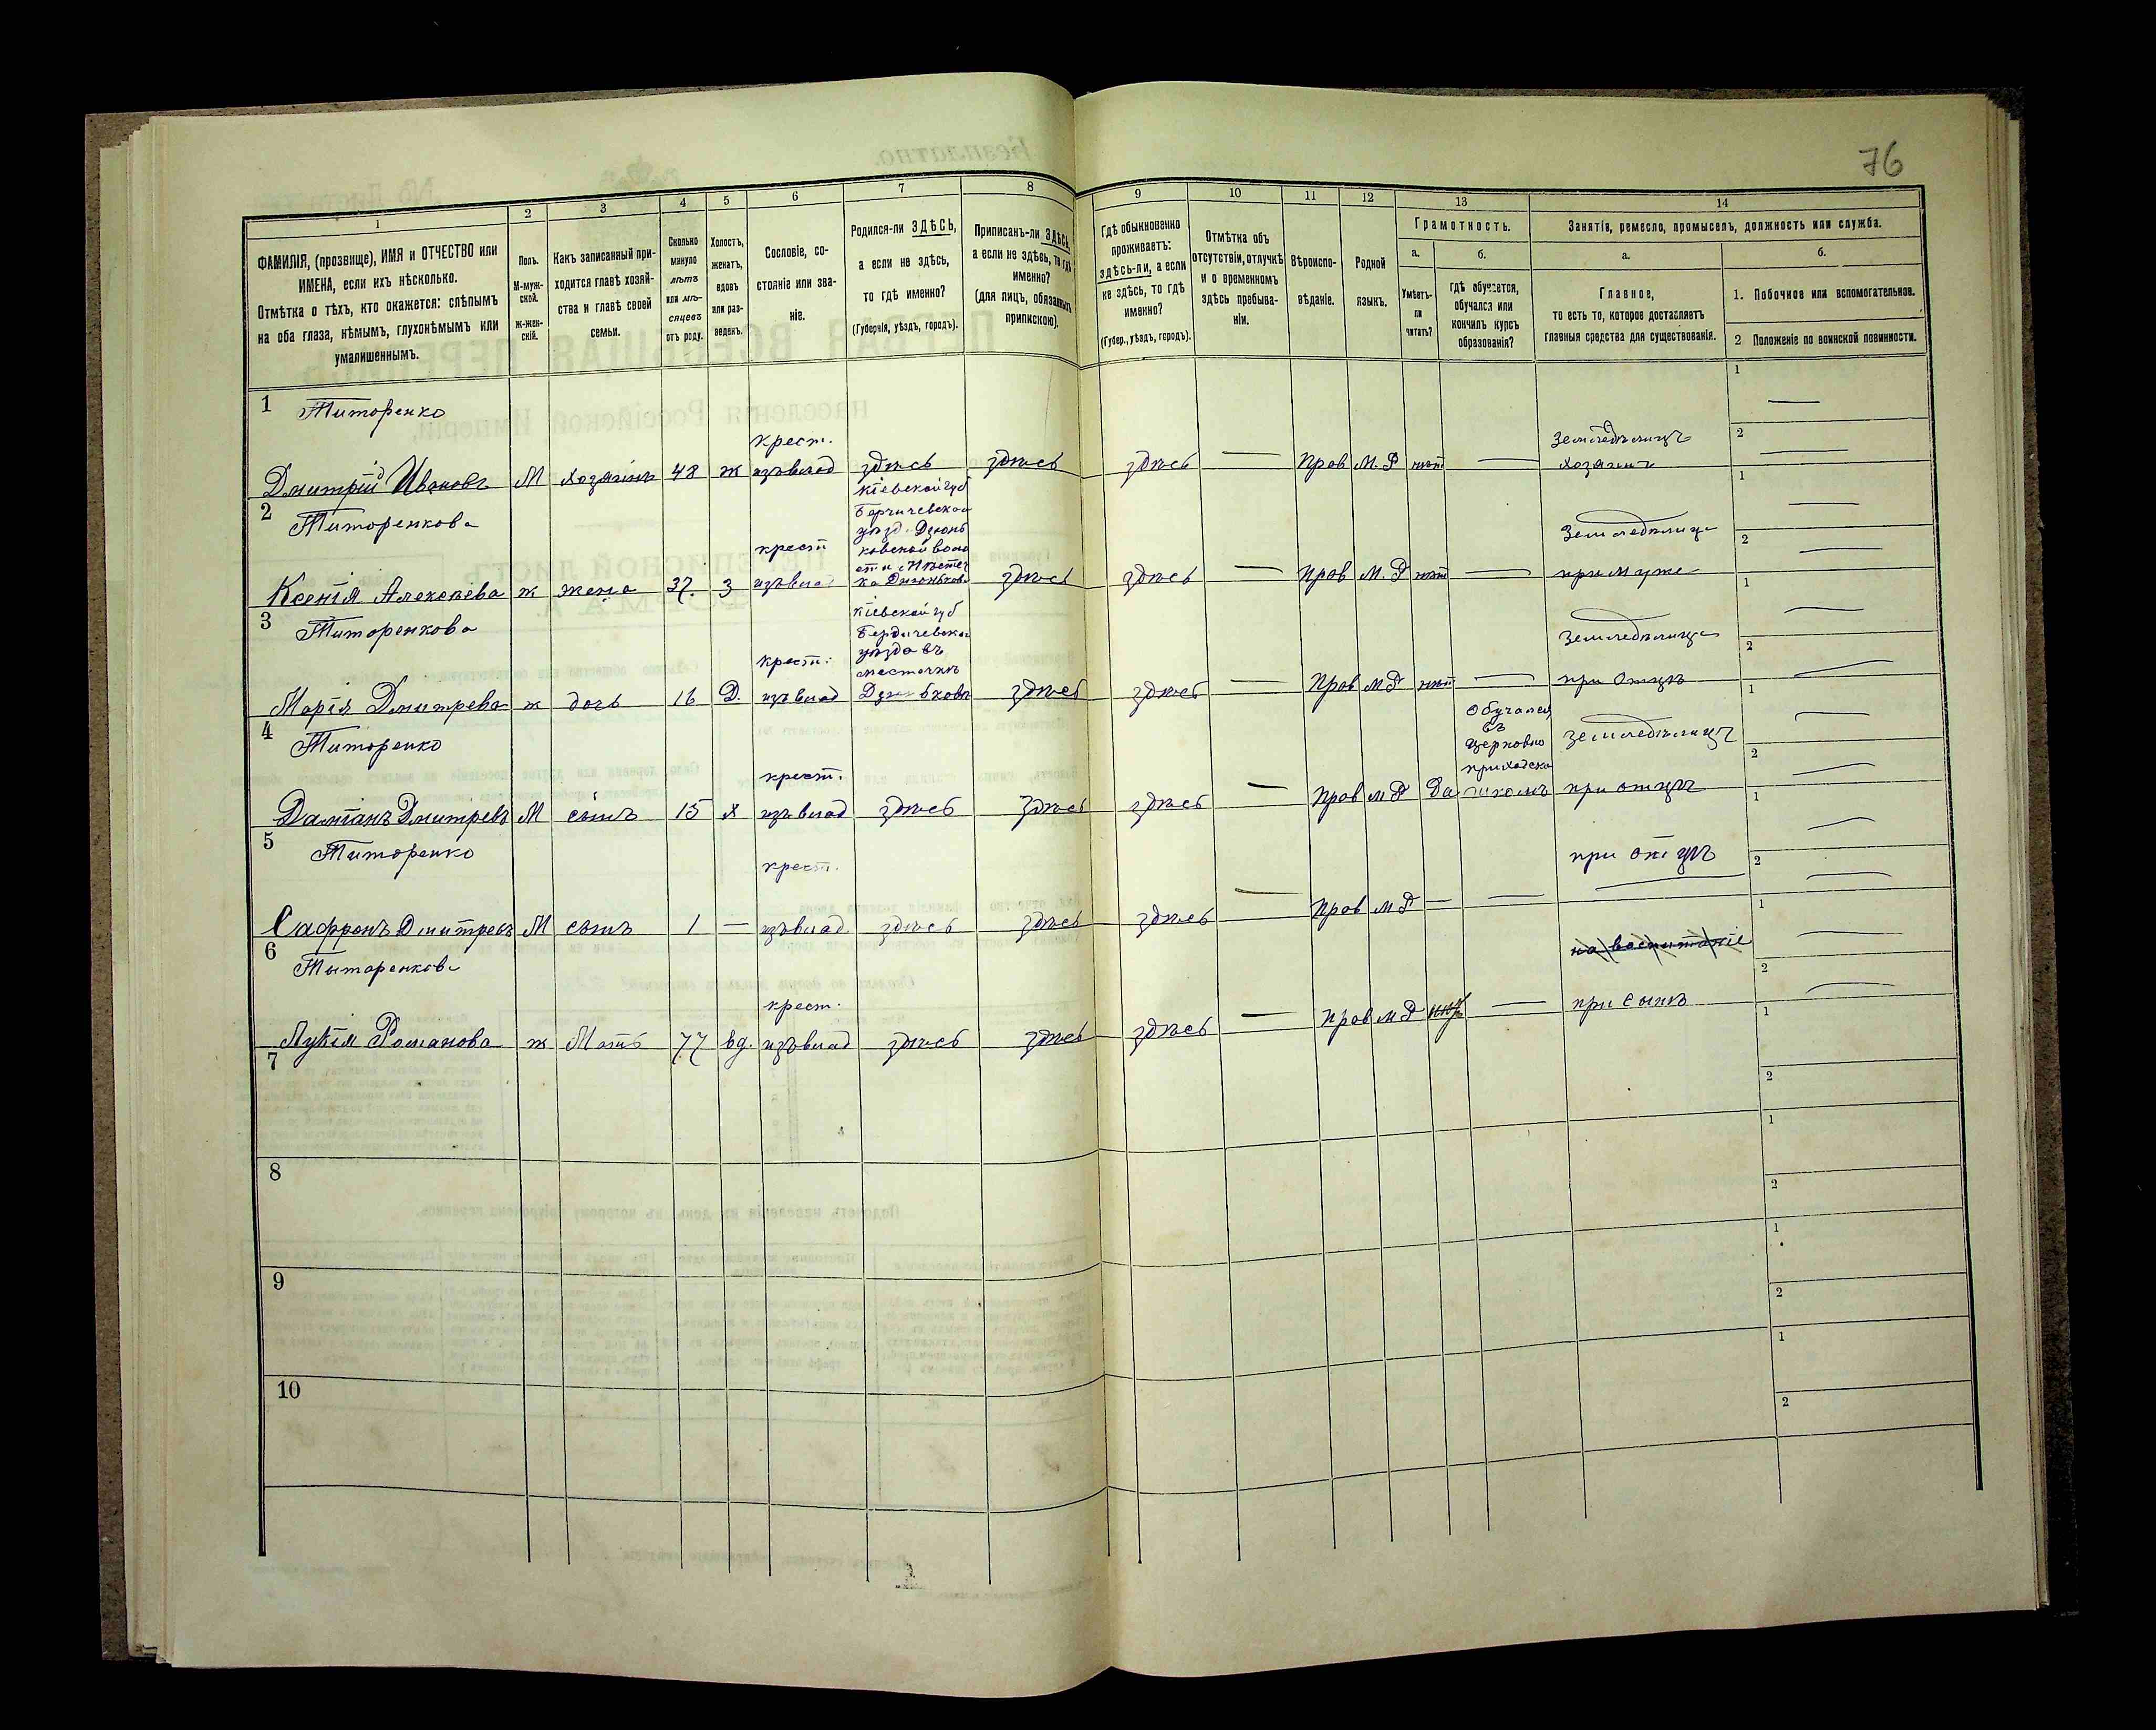 76
1 2 3 4 5 6 7 8 9 10 11 12 13 14
ФАМИЛІЯ, (прозвище), ИМЯ и ОТЧЕСТВО или
ИМЕНА, если ихъ нѣсколько.
Отмѣтка о тѣхъ, кто окажется: слѣпымъ
на оба глаза, нѣмымъ, глухонѣмымъ или
умалишеннымъ.
Полъ.
М-муж-
ской.
Ж-жен-
скій.
Какъ записанный при-
ходится главѣ хозяй-
ства и главѣ своей
семьи.
Сколько
минуло
лѣтъ
или мѣ-
сяцевъ
отъ роду.
Холостъ,
женатъ,
вдовъ
или раз-
веденъ.
Сословіе, со-
стояніе или зва-
ніе.
Родился-ли ЗДѢСЬ,
а если не здѣсь,
то гдѣ именно?
(Губернія, уѣздъ, городъ).
Приписанъ-ли ЗДѢСЬ,
а если не здѣсь, то гдѣ
именно?
(для лицъ, обязанныхъ
припискою).
Гдѣ обыкновенно
проживаетъ:
здѣсь-ли, а если
не здѣсь, то гдѣ
именно?
(Губер., уѣздъ, городъ).
Отмѣтка объ
отсутствіи, отлучкѣ
и о временномъ
здѣсь пребыва-
ніи.
Вѣроиспо-
вѣданіе.
Родной
языкъ.
Грамотность.
а.
Умѣетъ-
ли
читать?
б.
гдѣ обучается,
обучался или
кончилъ курсъ
образованія?
Занятія, ремесло, промыселъ, должность или служба.
а.
Главное,
то есть то, которое доставляетъ
главныя средства для существованія.
б.
1. Побочное или вспомогательное.
2 Положеніе по воинской повинности.
1 Титоренко
крест. Земледѣлецъ
Дмитрій Ивановъ М хозяинъ 48 ж изъ влад здѣсь здѣсь здѣсь — Прав М. Р нѣт — хозяинъ
2 Титоренкова
Кіевской губ
Бердичевскаго
уѣзд. Дзюнь
ковской воло
сти Мѣстеч
ка Дзюнькова
крест Земледѣлица
Ксенія Алексѣева ж жена 37. З изъ влад здѣсь здѣсь — Прав М. Р нѣт — при мужѣ
3 Титоренкова
Кіевской губ
Бердичевска
уѣзда въ
мѣстечкѣ
Дзюньковѣ
крест: Земледѣлица
Марія Дмитрева ж дочь 16 Д. изъ влад здѣсь здѣсь — Прав М Р нѣт — при отцѣ
4 Титоренко
Обучался
въ
церковно
приходско
школѣ
крест. земледѣлецъ
Даміанъ Дмитревъ М сынъ 15 х изъ влад здѣсь здѣсь здѣсь — Прав М Р Да при отцѣ
5 Титоренко
крест. при отцѣ
Сафронъ Дмитревъ М сынъ 1 — изъ влад здѣсь здѣсь здѣсь — Прав М Р — —
6 Тыторенкова
крест. на воспитаніе
Лукія Романова ж Мать 77 вд. изъ влад здѣсь здѣсь здѣсь — Прав М Р нѣт — при сынѣ
7
8
9
10